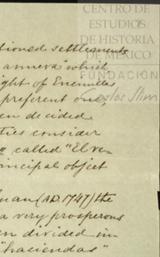 CENTRO DE
ESTUDIOS
DE HISTORIA
DE MÉXICO
FUNDACIÓN
Carlos Slim
tioned settlements
annera" which
ght of Encenillas
preferent only
en decided
ties consider
" called "El ve
ncipal object
uan (A.D. 1747) the
a very prosperous
en divided in
"haciendas"